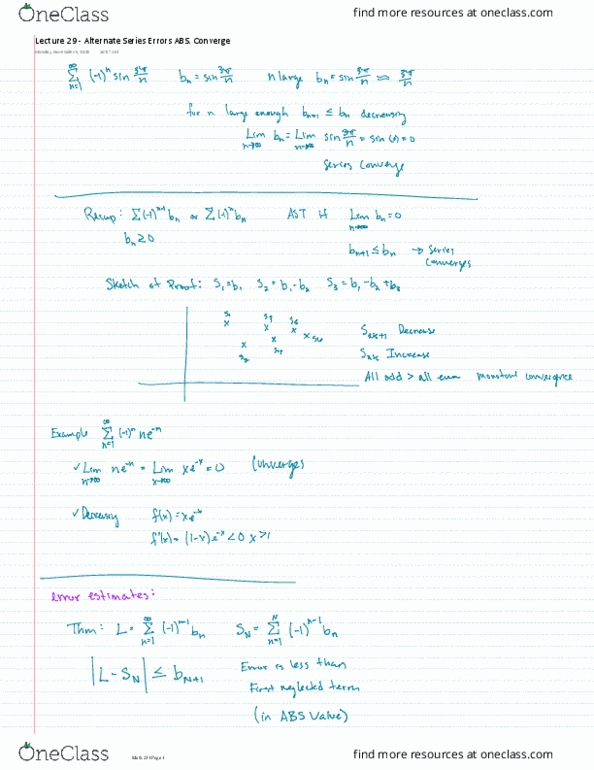 OneClass
find more resources at oneclass.com
Lecture 29 - Alternate Series Errors ABS. Converge
∞ Σ n=1 (-1)ⁿ sin 3π/n   bₙ = sin 3π/n   n large bₙ = sin 3π/n ≈ 3π/n
for n large enough bₙ₊₁ ≤ bₙ decreasing
Lim n→∞ bₙ = Lim n→∞ sin 3π/n = sin(0) = 0
Series Converge
Recap: Σ(-1)ⁿ⁻¹bₙ or Σ(-1)ⁿbₙ   AST if Lim n→∞ bₙ = 0
bₙ ≥ 0   bₙ₊₁ ≤ bₙ → Series
Converges
Sketch of Proof: S₁ = b₁   S₂ = b₁ - b₂   S₃ = b₁ - b₂ + b₃
S₂ₖ₊₁ Decrease
S₂ₖ Increase
All odd > all even monotone convergence
Example ∞ Σ n=1 (-1)ⁿ ne⁻ⁿ
✓ Lim n→∞ ne⁻ⁿ = Lim x→∞ xe⁻ˣ = 0   Converges
✓ Decreasing   f(x) = xe⁻ˣ
f'(x) = (1-x)e⁻ˣ < 0 x > 1
error estimates:
Thm: L = ∞ Σ n=1 (-1)ⁿ⁻¹bₙ   S_N = N Σ n=1 (-1)ⁿ⁻¹bₙ
|L - S_N| ≤ b_N+1   Error is less than
First neglected term
(in ABS Value)
OneClass
find more resources at oneclass.com